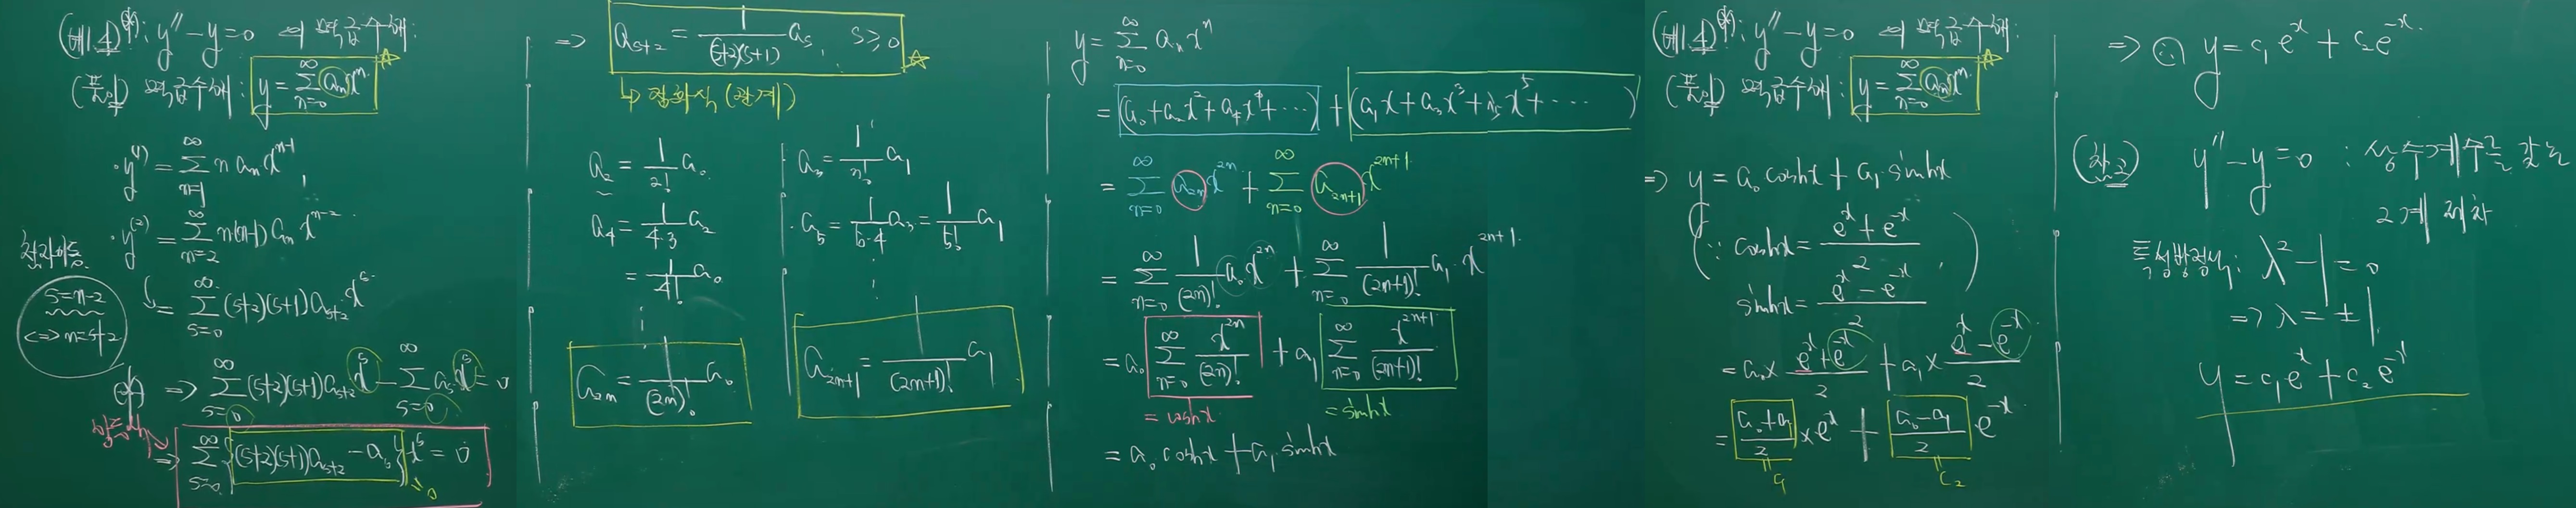 (예제1.4) (*): y'' - y = 0 의 멱급수해:
(풀이) 멱급수해: y = Σ_{n=0}^{∞} aₙxⁿ ☆
· y⁽¹⁾ = Σ_{n=1}^{∞} n aₙ x^{n-1}
· y⁽²⁾ = Σ_{n=2}^{∞} n(n-1) aₙ x^{n-2}
s = n-2
<=> n = s+2
= Σ_{s=0}^{∞} (s+2)(s+1) a_{s+2} x^s
(*) => Σ_{s=0}^{∞} (s+2)(s+1) a_{s+2} x^s - Σ_{s=0}^{∞} a_s x^s = 0
=> Σ_{s=0}^{∞} {(s+2)(s+1) a_{s+2} - a_s} x^s = 0
= 0
=> a_{s+2} = 1/((s+2)(s+1)) a_s, s ≥ 0 ☆
↳ 점화식 (관계)
a₂ = 1/2! a₀
a₄ = 1/(4·3) a₂
= 1/4! a₀
⋮
a_{2n} = 1/(2n)! a₀
· a₃ = 1/n! a₁
· a₅ = 1/(5·4) a₃ = 1/5! a₁
⋮
a_{2n+1} = 1/(2n+1)! a₁
y = Σ_{n=0}^{∞} aₙxⁿ
= (a₀ + a₂x² + a₄x⁴ + ⋯) + (a₁x + a₃x³ + a₅x⁵ + ⋯)
= Σ_{n=0}^{∞} a_{2n} x^{2n} + Σ_{n=0}^{∞} a_{2n+1} x^{2n+1}
= Σ_{n=0}^{∞} 1/(2n)! a₀ x^{2n} + Σ_{n=0}^{∞} 1/(2n+1)! a₁ · x^{2n+1}
= a₀ Σ_{n=0}^{∞} x^{2n}/(2n)! + a₁ Σ_{n=0}^{∞} x^{2n+1}/(2n+1)!
= coshx = sinhx
= a₀ coshx + a₁ sinhx
(예제1.4) (*): y'' - y = 0 의 멱급수해:
(풀이) 멱급수해: y = Σ_{n=0}^{∞} aₙxⁿ ☆
=> y = a₀ coshx + a₁ sinhx
(∵ coshx = (e^x + e^{-x})/2,
sinhx = (e^x - e^{-x})/2)
= a₀ × (e^x + e^{-x})/2 + a₁ × (e^x - e^{-x})/2
= (a₀ + a₁)/2 × e^x + (a₀ - a₁)/2 e^{-x}
= c₁ = c₂
=> ∴ y = c₁e^x + c₂e^{-x}
(참고) y'' - y = 0 : 상수계수를 갖는
2계 제차
특성방정식: λ² - 1 = 0
=> λ = ±1
y = c₁e^x + c₂e^{-x}